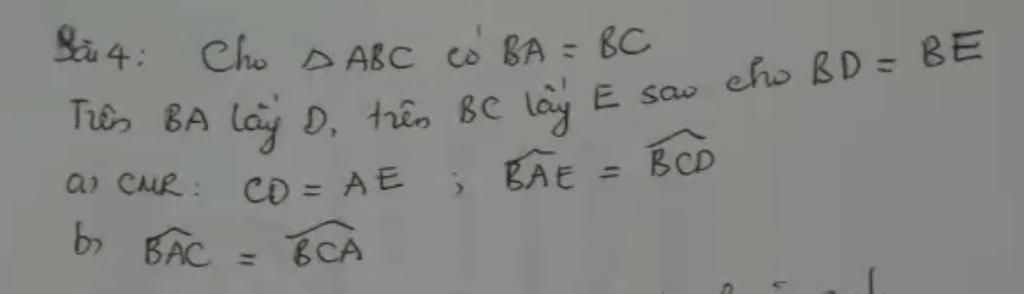 Bài 4: Cho △ ABC có BA = BC
Trên BA lấy D, trên BC lấy E sao cho BD = BE
a) CMR: CD = AE ; $\widehat{BAE}$ = $\widehat{BCD}$
b) $\widehat{BAC}$ = $\widehat{BCA}$